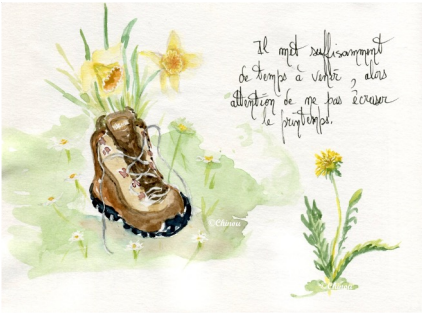 Il met suffisamment
de temps à venir, alors
attention de ne pas écraser
le printemps.
©Chinou
©Chinou